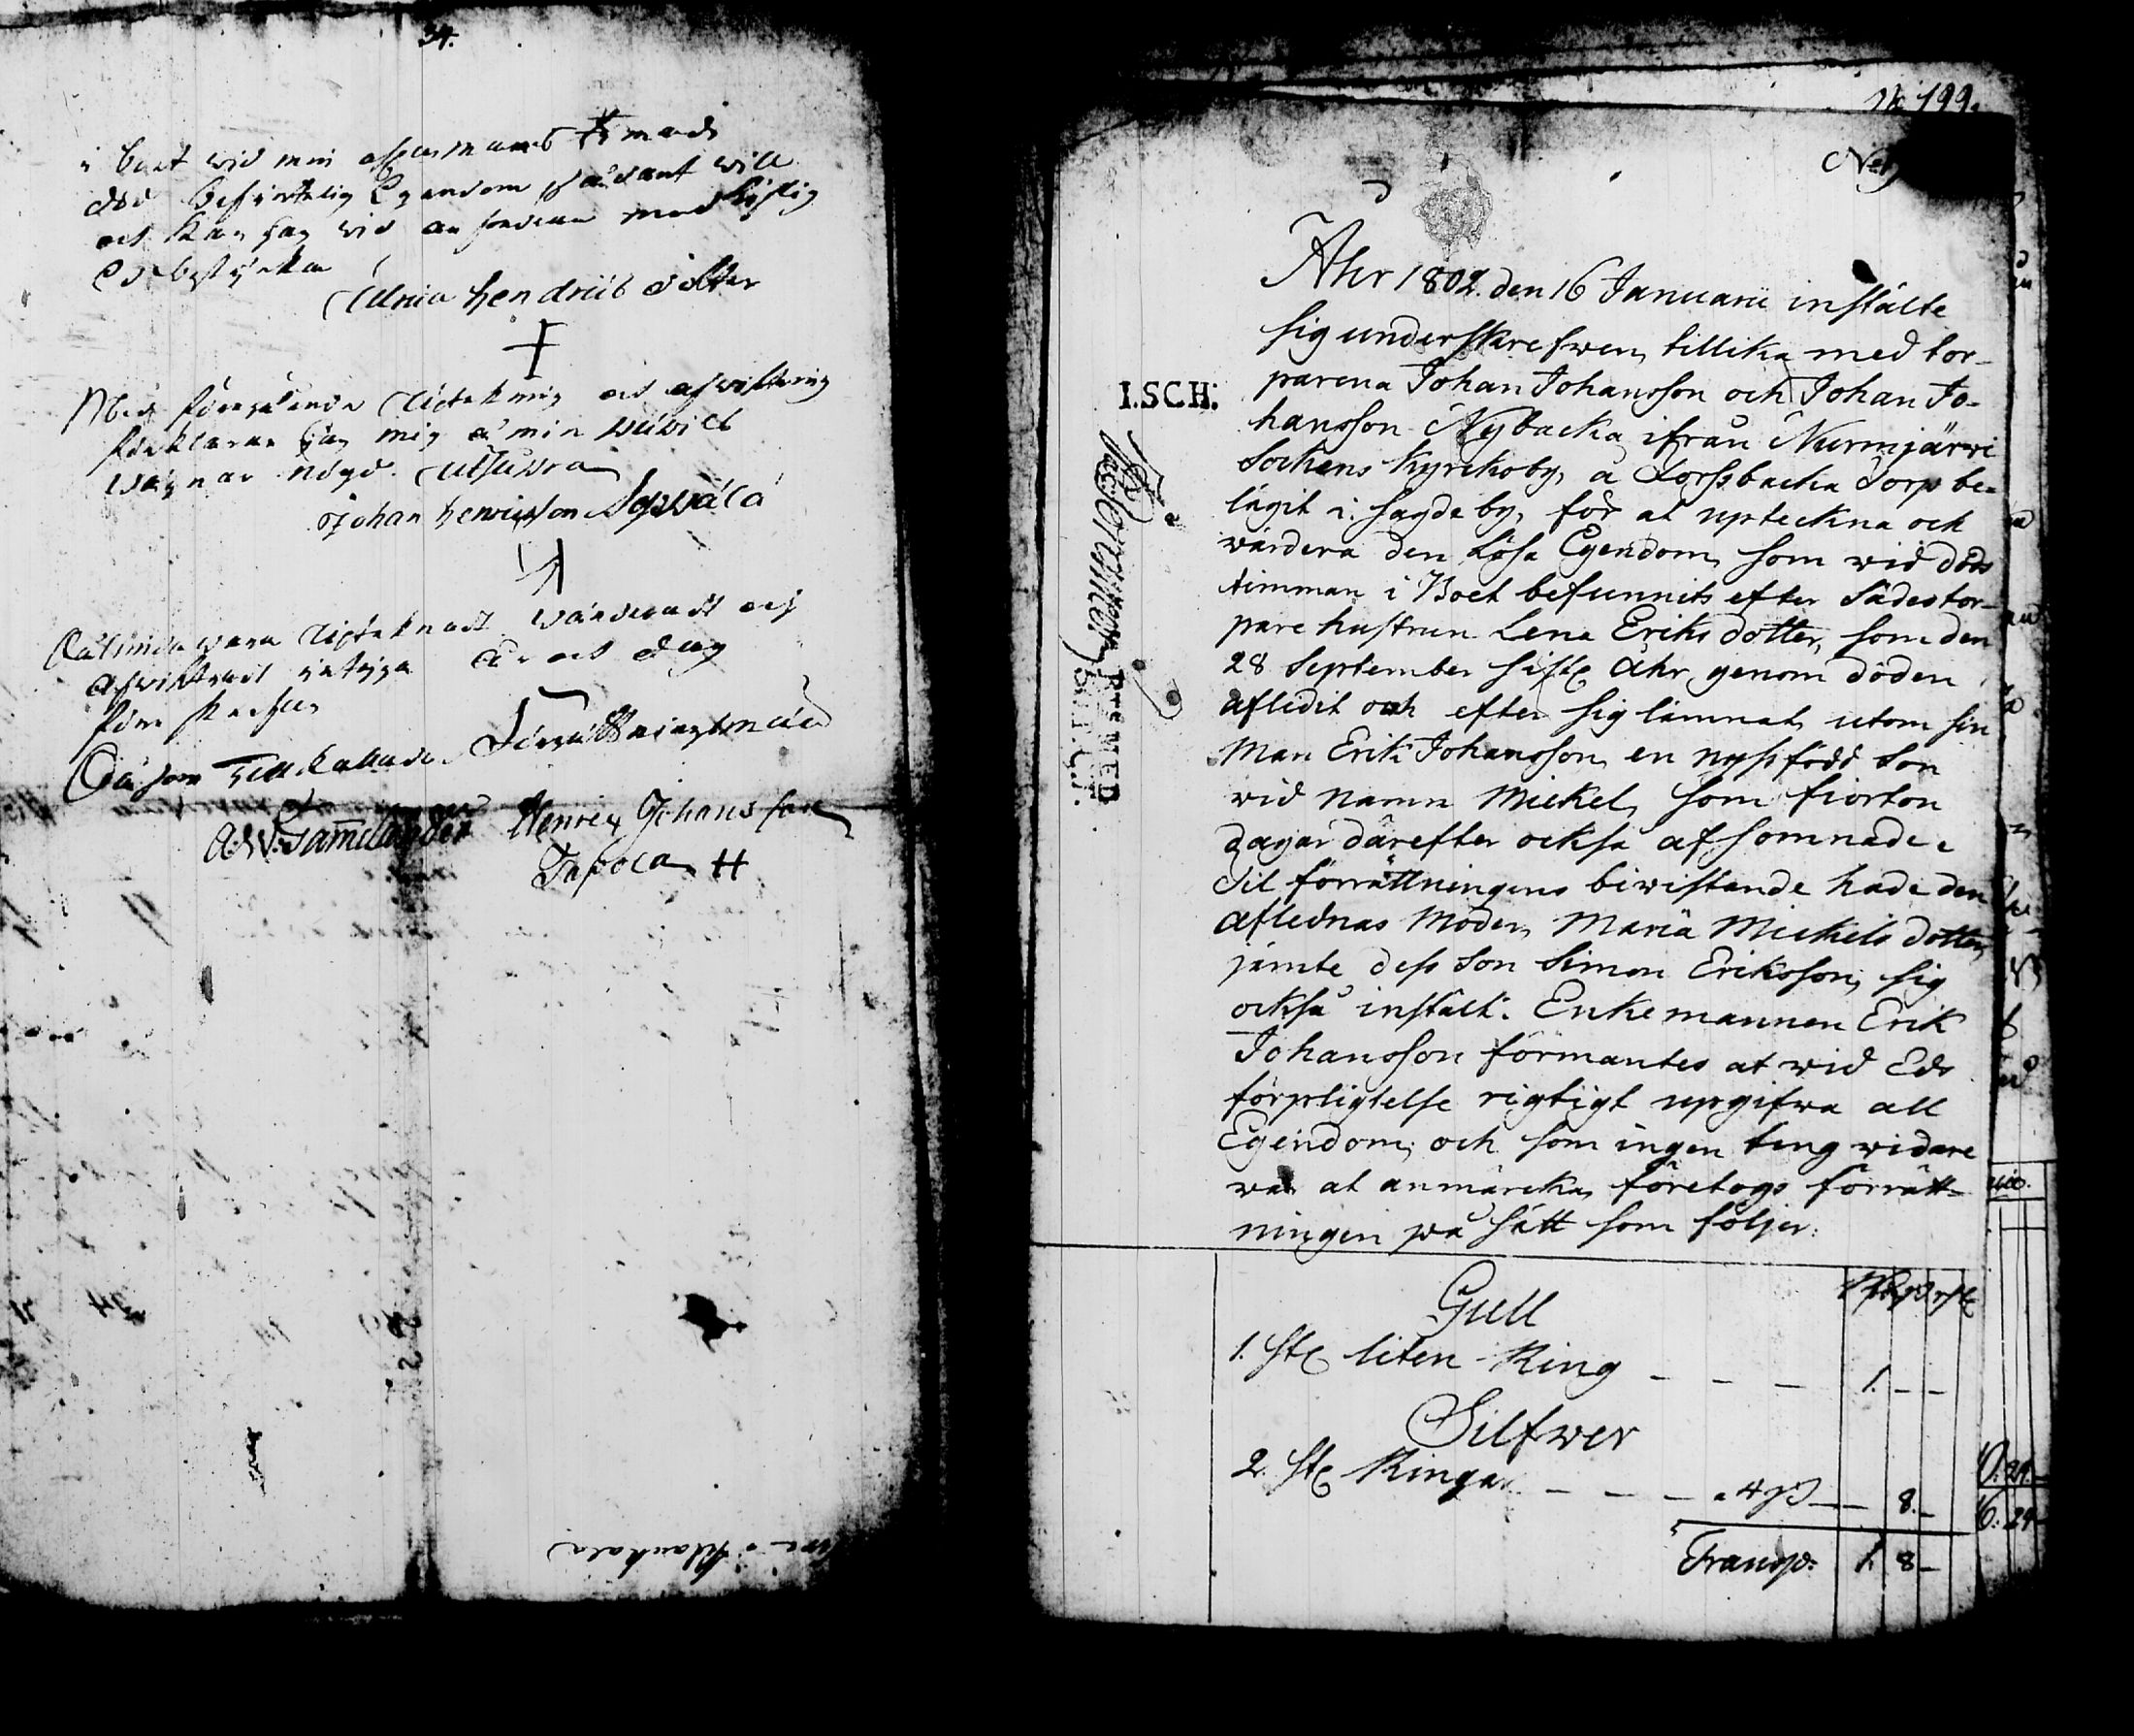 34.
i boet wid min
död befintelig Egendom sådant will
och kan jag wid anfordran med liflig
Ed bestyrka
Anna Hendrics dotter
Med föregående Upteknning och afwittring
förklarar jag mig å min
wägnar nögd. Utsupra
Johan Henricsson Seppälä
Sålunda vara Upteknadt wärderadt och
afwittradt intyga År och dag
föreskrefne
Så som Till kallade
A:W: Tamelander Henric Johansson
Tapola H
No 199.
No
Åhr 1802. den 16 Januarii instälte
sig underskrefwen, tillika med tor-
parena Johan Johansson och Johan Jo-
I.SCH:
hansson Nybacka ifrån Nurmijärwi
Sockens kyrckoby, a Forssbacka Torp be-
lägit i sagde by, för at upteckna och
wärdera den Lösa Egendom, som wid döds
timman i Boet befunnits efter Sädestor-
pare hustrun Lena Eriks dotter, som den
28 September sistl. åhr, genom döden
aflidit och efter sig lämnat, utom sin
Man Erik Johansson, en nyssfödd Son
wid namn Mickel, som fiorton
dagar därefter också afsomnade.
Til förrättningens biwistande hade den
aflednas Moder, Maria Mickels dotter,
jämte dess Son Simon Eriksson, sig
också instält. Enkemannen Erik
Johansson förmantes at wid Eds
förpligtelse rigtigt upgifwa all
Egendom, och som ingen ting widare
war at anmärcka, företogs förrätt-
ningen på sätt som följer:
Gull
1. st. liten Ring - - - 1. - -
Silfwer
2. st. Ringar - - - a 4 ß - - 8. -
Transp: 1. 8 -